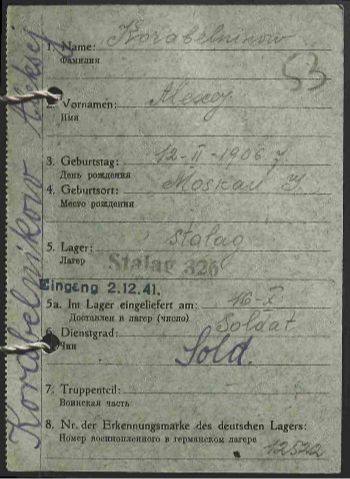 Korabelnikow Aleksej
1. Name: Korabelnikow
Фамилия
53
2. Vornamen: Alexej
Имя
3. Geburtstag: 12-II-1906
День рождения
4. Geburtsort: Moskau
Место рождения
5. Lager: Stalag
Лагерь
Stalag 326
Eingang 2.12.41.
5a. Im Lager eingeliefert am: -X
Доставлен в лагерь (число)
6. Dienstgrad: Soldat
Чин
Sold.
7. Truppenteil:
Воинская часть
8. Nr. der Erkennungsmarke des deutschen Lagers:
Номер военнопленного в германском лагере
12522